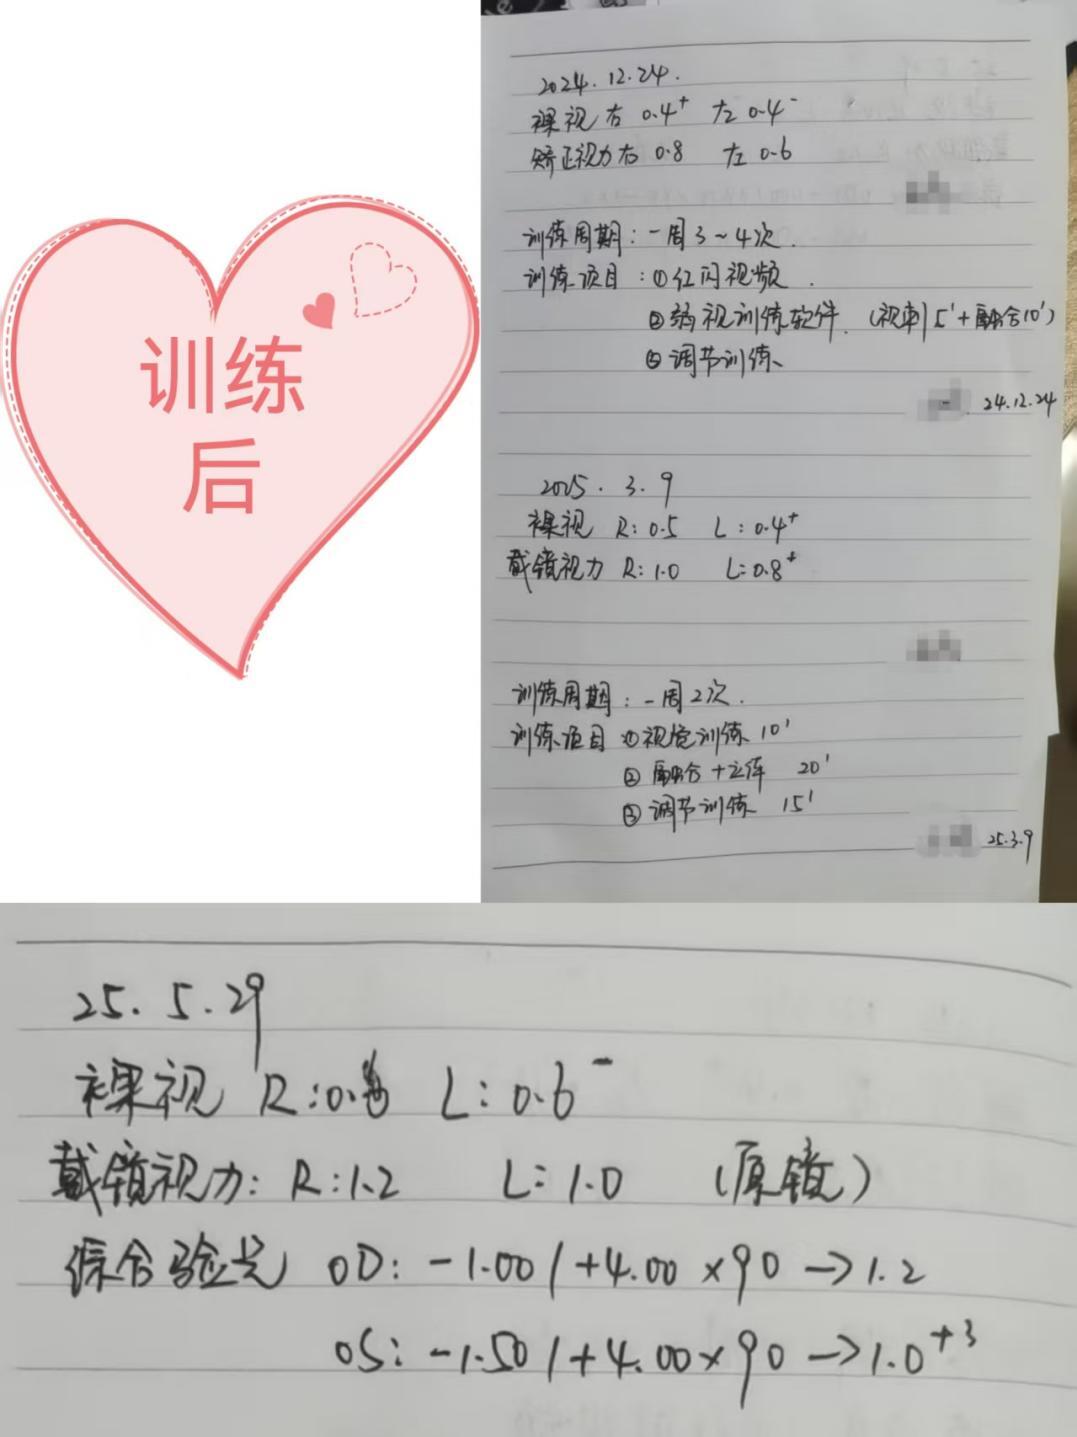 训练
后
2024.12.24.
裸视 右 0.4⁺ 左 0.4⁻
矫正视力右 0.8 左 0.6
训练周期：一周3～4次.
训练项目：①红闪视频.
②弱视训练软件.（视刺5'+融合10'）
③调节训练
24.12.24
2025.3.9
裸视 R:0.5 L:0.4⁺
戴镜视力 R:1.0 L:0.8⁺
训练周期：一周2次.
训练项目 ①视觉训练 10'
② 融合+立体 20'
③ 调节训练 15'
25.3.9
25.5.29
裸视 R:0.6 L:0.6⁻
戴镜视力: R:1.2 L:1.0 (原镜)
综合验光 OD:-1.00/+4.00×90→1.2
OS:-1.50/+4.00×90→1.0⁺³